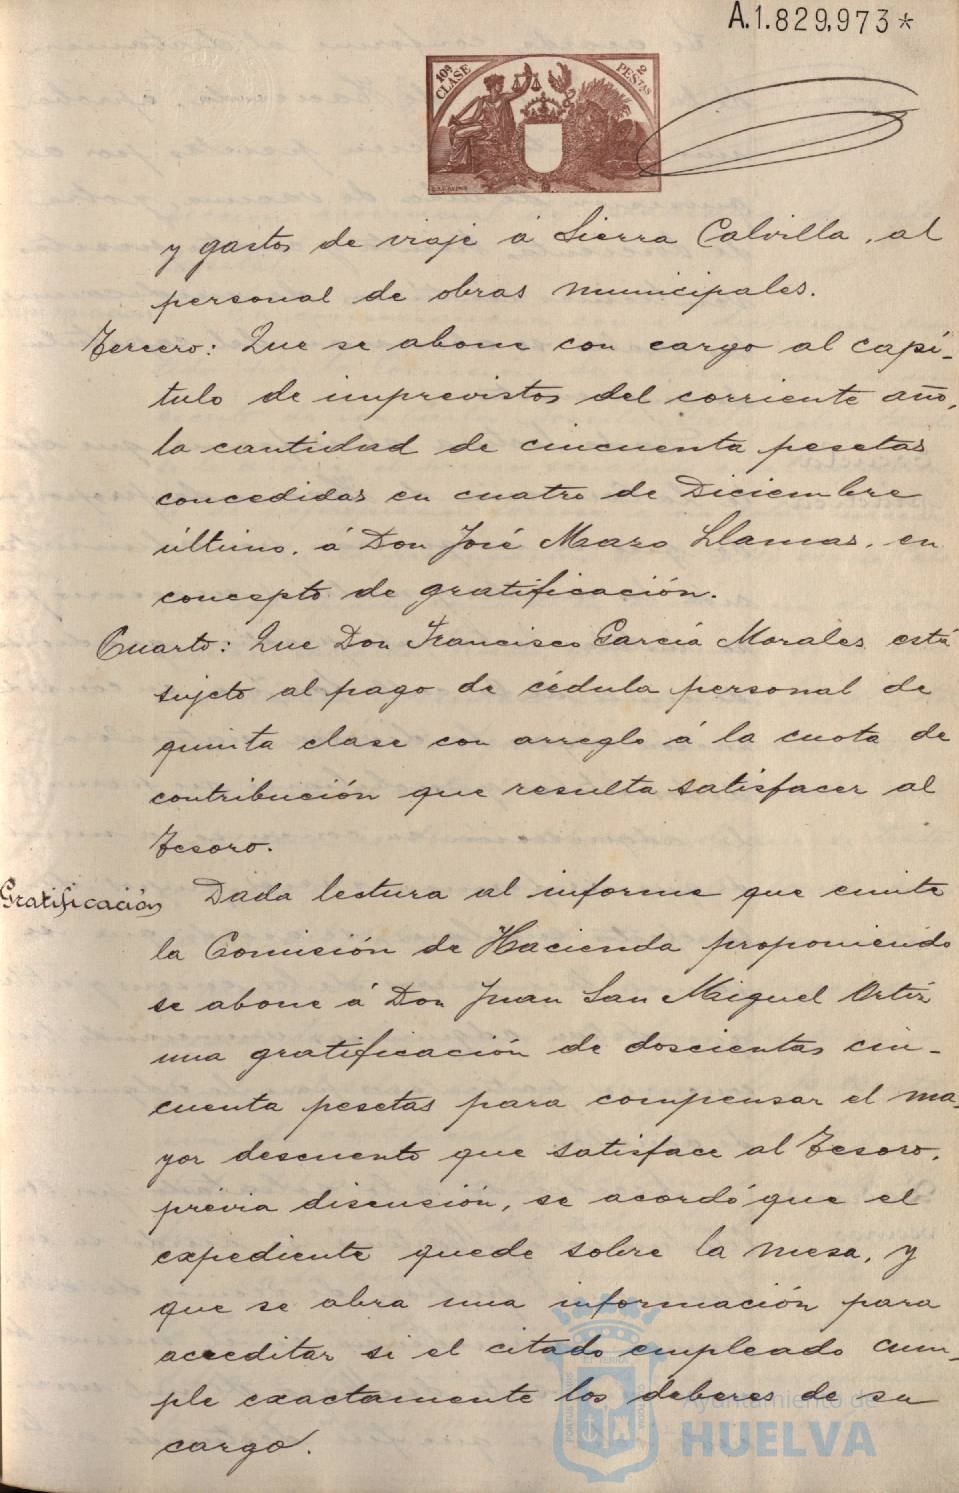 A.1.829,973*
10ª CLASE
2 PESTAS
y gastos de viaje á Sierra Calvilla, al
personal de obras municipales.
Tercero: Que se abone con cargo al capí-
tulo de imprevistos del corriente año,
la cantidad de cincuenta pesetas
concedidas en cuatro de Diciembre
último, á Don José Mazo Llamas, en
concepto de gratificación.
Cuarto: Que Don Francisco García Morales está
sujeto al pago de cédula personal de
quinta clase con arreglo á la cuota de
contribución que resulta satisfacer al
Tesoro.
Gratificación Dada lectura al informe que emite
la Comisión de Hacienda proponiendo
se abone á Don Juan San Miguel Ortiz
una gratificación de doscientas cin-
cuenta pesetas para compensar el ma-
yor descuento que satisface al Tesoro,
prévia discusión, se acordó que el
expediente quede sobre la mesa, y
que se abra una información para
acreditar si el citado empleado cum-
ple exactamente los deberes de su
cargo.
Ayuntamiento de
HUELVA